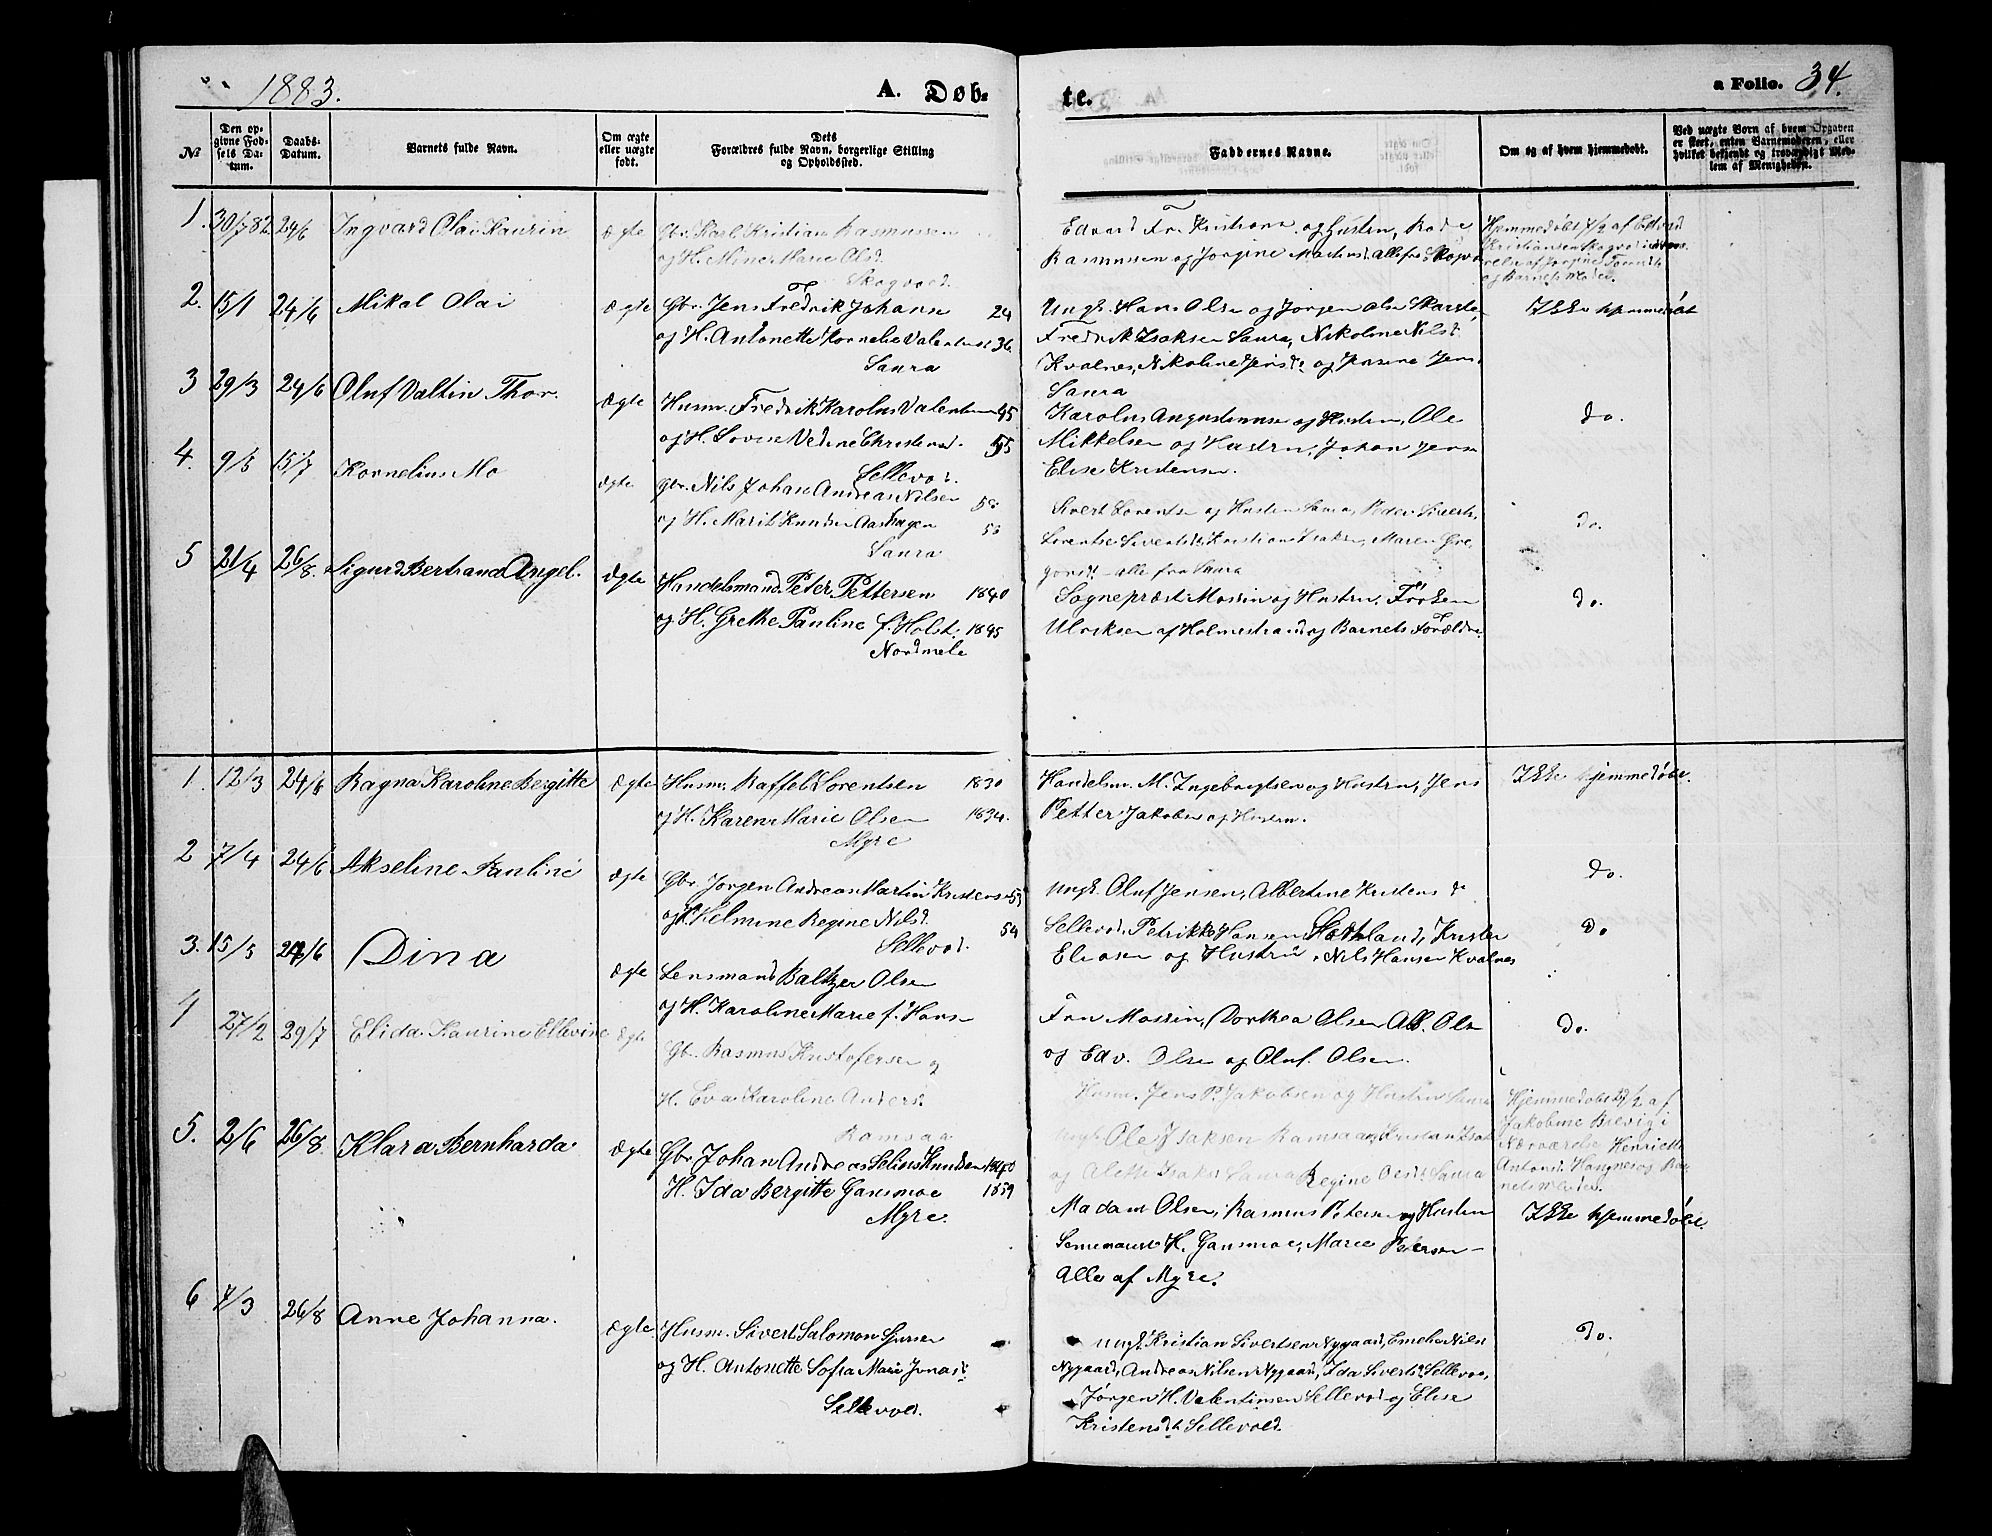 1883.
A. Døb-
te.
a Folio. 34.
№
Den op-
givne Fød-
sels Da-
tum.
Daabs-
Datum.
Barnets fulde Navn.
Om ægte
eller uægte
født.
Dets
Forældres fulde Navn, borgerlige Stilling
og Opholdssted.
Faddernes Navne.
Om og af hvem hjemmedøbt.
Ved uægte Børn af hvem Opgaven
er skeet, enten Barnemoderen, eller
hvilket bekjendt og troværdigt Med-
lem af Menigheden.
1. 30/7 82 24/6 Ingvard Olai Kaurin ægte Gbr. Karl Kristian Rasmussen
og H. Mine Marie Olsd.
Skogvold
Edvard Fr. Kristians. og Hustru,
Rasmussen og Jorgine alle fra Skogvo
Hjemmedøbt af Edvard
Kristiansen Skogvold i
relse af Jorgine
og Barnets Moder.
2. 15/1 24/6 Mikal Olai ægte Gbr. Jens Fredrik Johanse 24
og H. Antonette Kornelie Valentinsd 36
Saura
Ungk. Hans Olse og Jorgen Olse Skarste,
Fredrik Isaksen Saura, Nikoline Nilsd
Kvalnes, Nikoline Jensd. og Jensine Jens.
Saura
Ikke hjemmedøbt
3 29/3 24/6 Oluf Valtin Thor. ægte Husm. Fredrik Karolus Valentin 45
og H. Lovise Vedine Christensd. 55
Sellevod.
Karolus Angustinuse og Hustru, Ole
Mikkelsen og Hustru, Johan Jense
Elise Kristense.
do.
4. 9/5 15/7 Kornelius Mo ægte Gbr. Nils Johan Andreas Nilsen 58
og H. Marit Knudsn Aashagen 53
Saura
Sivert Lorentse og Hustru Saura, Peder Sivertse,
Lorentse Sivertsd, Kristian Isakse, Maren Gre
gorsd. alle fra Saura
do.
5 21/4 26/8. Sigurd Bertrand Angel. ægte Handelsmand Peter Pettersen 1840
og H. Grethe Pauline f. Holst. 1845
Nordmele
Sogneprest Mossin og Hustru, Frøken
Ulriksen af Holmestrand og Barnets Forældre.
do.
1. 12/3 24/6 Ragna Karoline Bergitte ægte Husm. Raffel Lorentsen 1830
og H. Karen Marie Olsen 1834.
Myre
Handelsm. M. Ingebrigtsen og Hustru, Jens
Petter Jakobse og Hustru.
Ikke hjemmedøbt.
2 7/4 24/6 Akseline Pauline ægte Gbr. Jorgen Andreas Martin Kristense 53
og H. Helmine Regine Nilsd. 54
Sellevod.
Ungk. Oluf Jensen, Albertine Kristensd
Sellevod, Petrikke Hansen, Krister
Eliasen og Hustru, Nils Hansen Kvalnes
do.
3. 15/5 24/6 Dina ægte Lensmand Baltzer Olsen
og H. Karoline Marie f. Hans
Fru Mossin, Dorthea Olsen Alb. Olse
og Edv. Olse og Oluf. Olsen.
do
4 27/2 29/7 Elida Kaurine Ellevine ægte Gbr. Rasmus Kristofersen og
H. Eva Karoline Andersd.
Ramsaa
Husm. Jens P. Jakobsen og Hustru Saura
Ungk. Ole Isaksen Ramsaa, Kristian Isak
og Alette Isaksd Saura Regine Olsd. Saura
do.
Hjemmedøbt 29/2 af
Jakobine Brevig i
Nærværelse Henriette
Antonsd. Haugnes og Bar
nets Moder.
5. 2/6 26/8. Klara Bernharda. ægte Gbr Johan Andreas Selius Knudsen 1840
H. Ida Bergitte Gansmoe 1859
Myre.
Madam Olsen, Rasmus Peterse og Hustru
Seminarist H. Gansmoe, Marie Peterse —
Alle af Myre.
Ikke hjemmedøbt.
6 4/3 26/8 Anne Johanna. ægte Husm. Sivert Salomon Sjursen
og H. Antonette Sofia Marie Jonasd.
Sellevold.
Ungk. Kristian Sivertsen Nygaard, Emelie Nilse
Nygaard, Andreas Nilsen Nygaard, Ida Sivertsd Sellevod,
Jørgen H. Valentinsen Sellevod og Elise
Kristensdt Sellevold.
do.